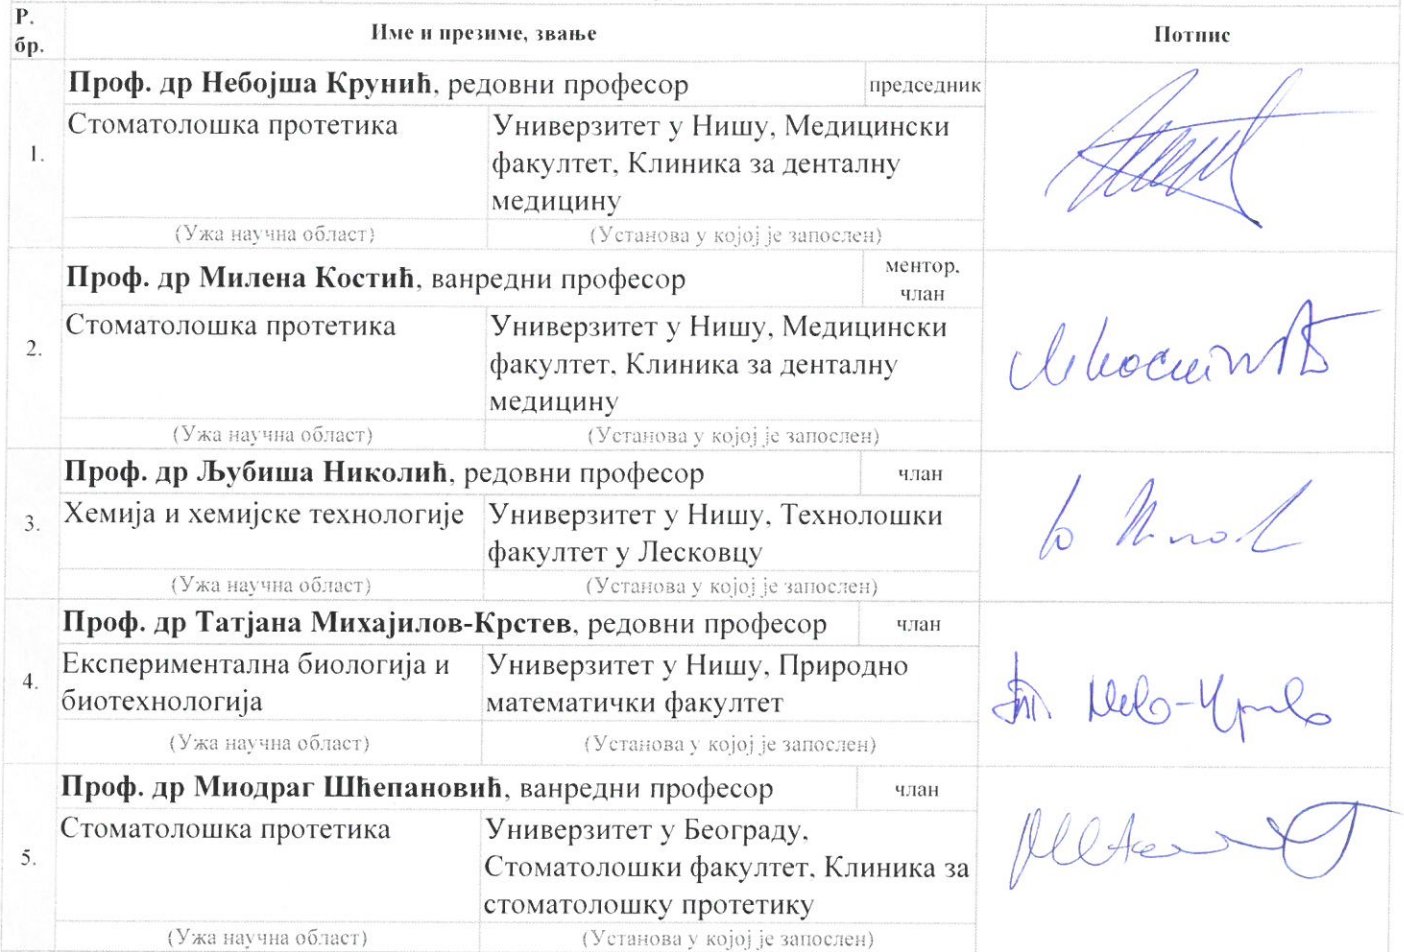 Р.
бр.
Име и презиме, звање
Потпис
1.
Проф. др Небојша Крунић, редовни професор
председник
Стоматолошка протетика
Универзитет у Нишу, Медицински
факултет, Клиника за денталну
медицину
(Ужа научна област)
(Установа у којој је запослен)
2.
Проф. др Милена Костић, ванредни професор
ментор,
члан
Стоматолошка протетика
Универзитет у Нишу, Медицински
факултет, Клиника за денталну
медицину
(Ужа научна област)
(Установа у којој је запослен)
3.
Проф. др Љубиша Николић, редовни професор
члан
Хемија и хемијске технологије
Универзитет у Нишу, Технолошки
факултет у Лесковцу
(Ужа научна област)
(Установа у којој је запослен)
4.
Проф. др Татјана Михајилов-Крстев, редовни професор
члан
Експериментална биологија и
биотехнологија
Универзитет у Нишу, Природно
математички факултет
(Ужа научна област)
(Установа у којој је запослен)
5.
Проф. др Миодраг Шћепановић, ванредни професор
члан
Стоматолошка протетика
Универзитет у Београду,
Стоматолошки факултет, Клиника за
стоматолошку протетику
(Ужа научна област)
(Установа у којој је запослен)